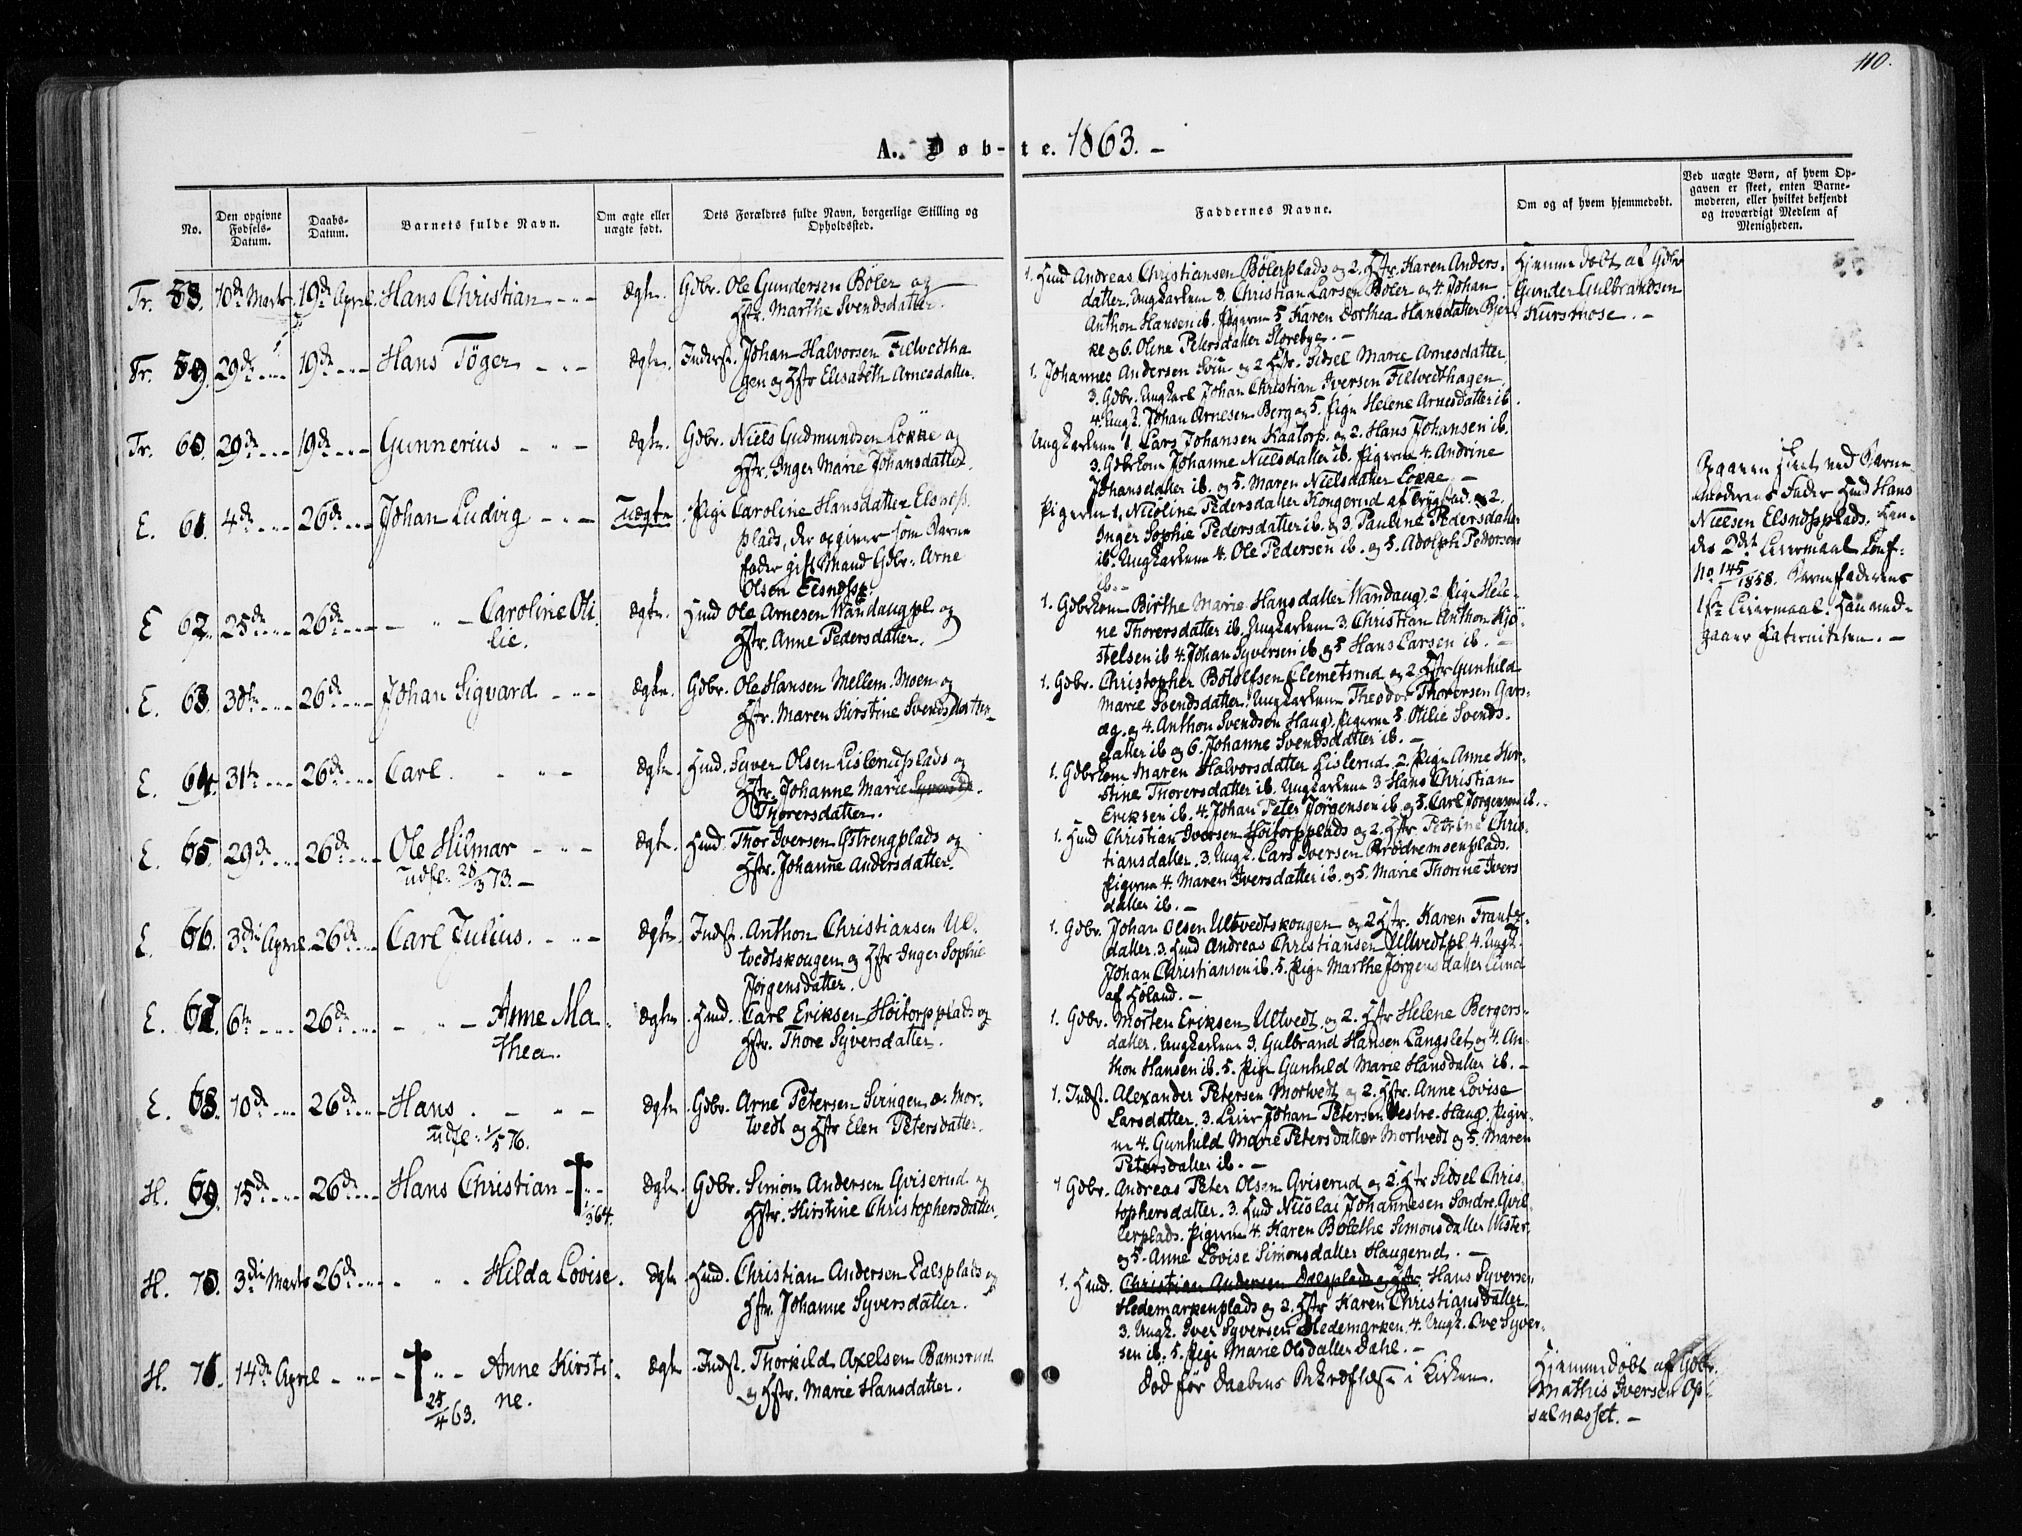 110.
A. Døb-te. 1863. –
No.
Den opgivne Fødsels-Datum.
Daabs-Datum.
Barnets fulde Navn.
Om ægte eller uægte født.
Dets Forældres fulde Navn, borgerlige Stilling og Opholdssted.
Faddernes Navne.
Om og af hvem hjemmedøbt.
Ved uægte Børn, af hvem Opgaven er skeet, enten Barnemoderen, eller hvilket bekjendt og troværdigt Medlem af Menigheden.
Tr. 58. 10de Marts. 19de April. Hans Christian – ægte. Gdbr. Ole Gundersen Böler og
Hstr. Marthe Svendsdatter.
1. Husmd Andreas Christiansen Bölerplads og 2. Hstr. Karen Anders-
datter. Ungkarlene 3. Christian Larsen Böler og 4. Johan
Anthon Hansen ib. Pigerne 5. Karen Dorthea Hansdatter Bjer-
ke og 6. Oline Petersdatter Storebye. –
Hjemmedøbt af Gdbr
Gunder Gulbrandsen
Kursmose. –
Tr. 59. 29de 19de Hans Töger – ægte. Inderst. Johan Halvorsen Fielvedtha
gen og Hstr Elisabeth Arnesdatter.
1. Johannes Andersen og 2 Hstr. Sidsel Marie Arnesdatter
3. Gdbr. Ungkarl Johan Christian Iversen Fielvedthagen.
4. Ungk. Johan Arnesen Berg og 5. Pige Helene Arnesdatter ib.
Tr. 60. 29de 19de Gunnerius – ægte. Gdbr. Niels Gudmundsen Lökke og
Hstr. Inger Marie Johansdatter.
Ungkarlene 1. Lars Johansen Kaatorp og 2. Hans Johansen ib.
3. Gdbrkone Johanne Nielsdatter ib. Pigerne 4. Andrine
Johansdatter ib. og 5. Maren Nielsdatter Lökke. –
E. 61. 4de 26de Johan Ludvig – uægte. Pige Caroline Hansdatter Elsness
plads, der opgiver som Barne
fader gift Mand Gdbr. Arne
Olsen Elsness.
Pigerne 1. Nicoline Pedersdatter Kongerud af Trygstad og 2.
Inger Sophie Pedersdatter ib. og 3. Pauline Pedersdatter
ib. Ungkarlene 4. Ole Pedersen ib. og 5. Adolph Pedersen
ib. –
Opgaven skeet ved Barne
moderens Fader Husmd Hans
Nielsen Elsnessplads. Hen-
des 2det Leiermaal Conf-
No 145/1858. Barnefaderens
1ste Leiermaal. Han ved-
gaaer Paterniteten. –
E 62. 25de 26de – Caroline Oti
lie. ægte. Husmd Ole Arnesen Wandaugpl. og
Hstr. Anne Pedersdatter.
1. Gdbrkone Birthe Marie Hansdatter Wandaug. 2. Pige Hele-
ne Thorersdatter ib. Ungkarlene 3. Christian Anthon Kjö-
stelsen ib 4. Johan Syversen ib og 5 Hans Larsen ib. –
E. 63. 30te 26de Johan Sigvard – ægte. Gdbr. Ole Hansen Mellem-Moen og
Hstr. Maren Kirstine Svendsdatter.
1. Gdbr. Christopher Bölolfsen Clemetsrud og 2. Hstr Gunhild
Marie Svendsdatter. Ungkarlene Theodor Thorersen Gars-
æg. og 4. Anthon Svendsen Haug. Pigerne 5. Otilie Svends-
datter ib og 6. Johanne Svendsdatter ib. –
E. 64. 31te 26de Carl. – ægte. Husmd. Syver Olsen Lislerudsplads og
Hstr. Johanne Marie Syversd.
Thorersdatter.
1. Gdbrkone Maren Halvorsdatter Lislerud. 2. Pige Anne Kir-
stine Thorersdatter ib. Ungkarlene 3 Hans Christian
Eriksen ib. 4. Johan Peter Jörgensen ib og 5. Carl Jörgensen ib.
E. 65. 29de 26de Ole Hilmar – ægte. Husmd. Thor Iversen Ystrengplads og
Udfl. 20/3 73. – Hstr. Johanne Andersdatter.
1. Husmd Christian Iversen Höitorpplads og 2. Hstr. Petrine Chris-
tiansdatter. 3. Ungk. Lars Iversen Brödremoenplads.
Pigerne 4. Maren Iversdatter ib. og 5. Marie Thorine Ivers
datter ib. –
E. 66. 3die April. 26de Carl Julius. – ægte. Indst. Anthon Christiansen Ul-
tvedtskougen og Hstr Inger Sophie
Jörgensdatter.
1. Gdbr. Johan Olsen Ultvedtskougen og 2 Hstr. Karen Frants-
datter. 3. Husmd Andreas Christiansen Ultvedtpl. 4. Ungk.
Johan Christiansen ib. 5. Pige Marthe Jörgensdatter Lund
af Höland. –
E. 67. 6te 26de – Anne Ma
thea. ægte. Husmd. Carl Eriksen Höitorpplads og
Hstr. Thore Syversdatter.
1. Gdbr. Morten Eriksen Ultvedt. og 2. Hstr Helene Bergers-
datter. Ungkarlene 3. Gulbrand Hansen Langslet og 4. An-
thon Hansen ib. 5. Pige Gunhild Marie Hansdatter ib. –
E. 68. 10de 26de Hans. – ægte. Gdbr. Arne Petersen Svingen æ. Mor-
Udfl. 1/5 76. tvedt og Hstr Elen Petersdatter.
1. Indst. Alexander Petersen Mortvedt og 2. Hstr. Anne Lovise
Larsdatter. 3. Leier Johan Petersen Vestre-Haug. Piger-
ne 4. Gunhild Marie Petersdatter Mortvedt og 5. Maren
Petersdatter ib. –
H. 69. 15de 26de Hans Christian † 64. ægte. Gdbr. Simon Andersen Gviserud og
Hstr. Kirstine Christophersdatter.
1 Gdbr. Andreas Peter Olsen Gviserud og 2. Hstr Sidsel Chris-
tophersdatter. 3. Husmd Nicolai Johannesen Söndre Qvil-
lerplads. Pigerne 4. Karen Bolethe Simonsdatter Wister
og 5. Anne Lovise Simonsdatter Haugerud. –
H. 70. 3die Marts 26de – Hilda Lovise. ægte Husmd. Christian Andersen Dalsplads og
Hstr. Johanne Syversdatter.
1. Husmd. Christian Andersen Dalsplads og Hstr. Hans Syversen
Hedemarkenplads og 2. Hstr Karen Christiansdatter.
3. Ungk. Iver Syversen Hedemarken. 4. Ungk. Ole Syver-
sen ib. 5. Pige Marie Olsdatter Dahl. –
H. 71. 14de April – † 25/4 63. Anne Kirsti
ne. ægte Indst. Thorkild Axelsen Bamsrud
og Hstr. Marie Hansdatter.
Död før Daabens Bekræftelse i Kirken.
Hjemmedøbt af Gdbr.
Mathis Iversen Op-
salnæsset. –